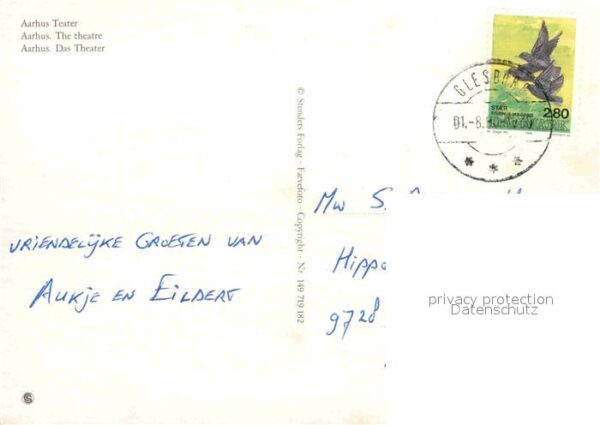 Aarhus Teater
Aarhus. The theatre
Aarhus. Das Theater
© Stenders Forlag - Fævefoto - Copyright - Nr. 149 719 182
STÆR
2.80
01.-8.
VRIENDELIJKE GROETEN VAN
AUKJE EN EILDERT
MW S.
HIPPO
9728
privacy protection
Datenschutz